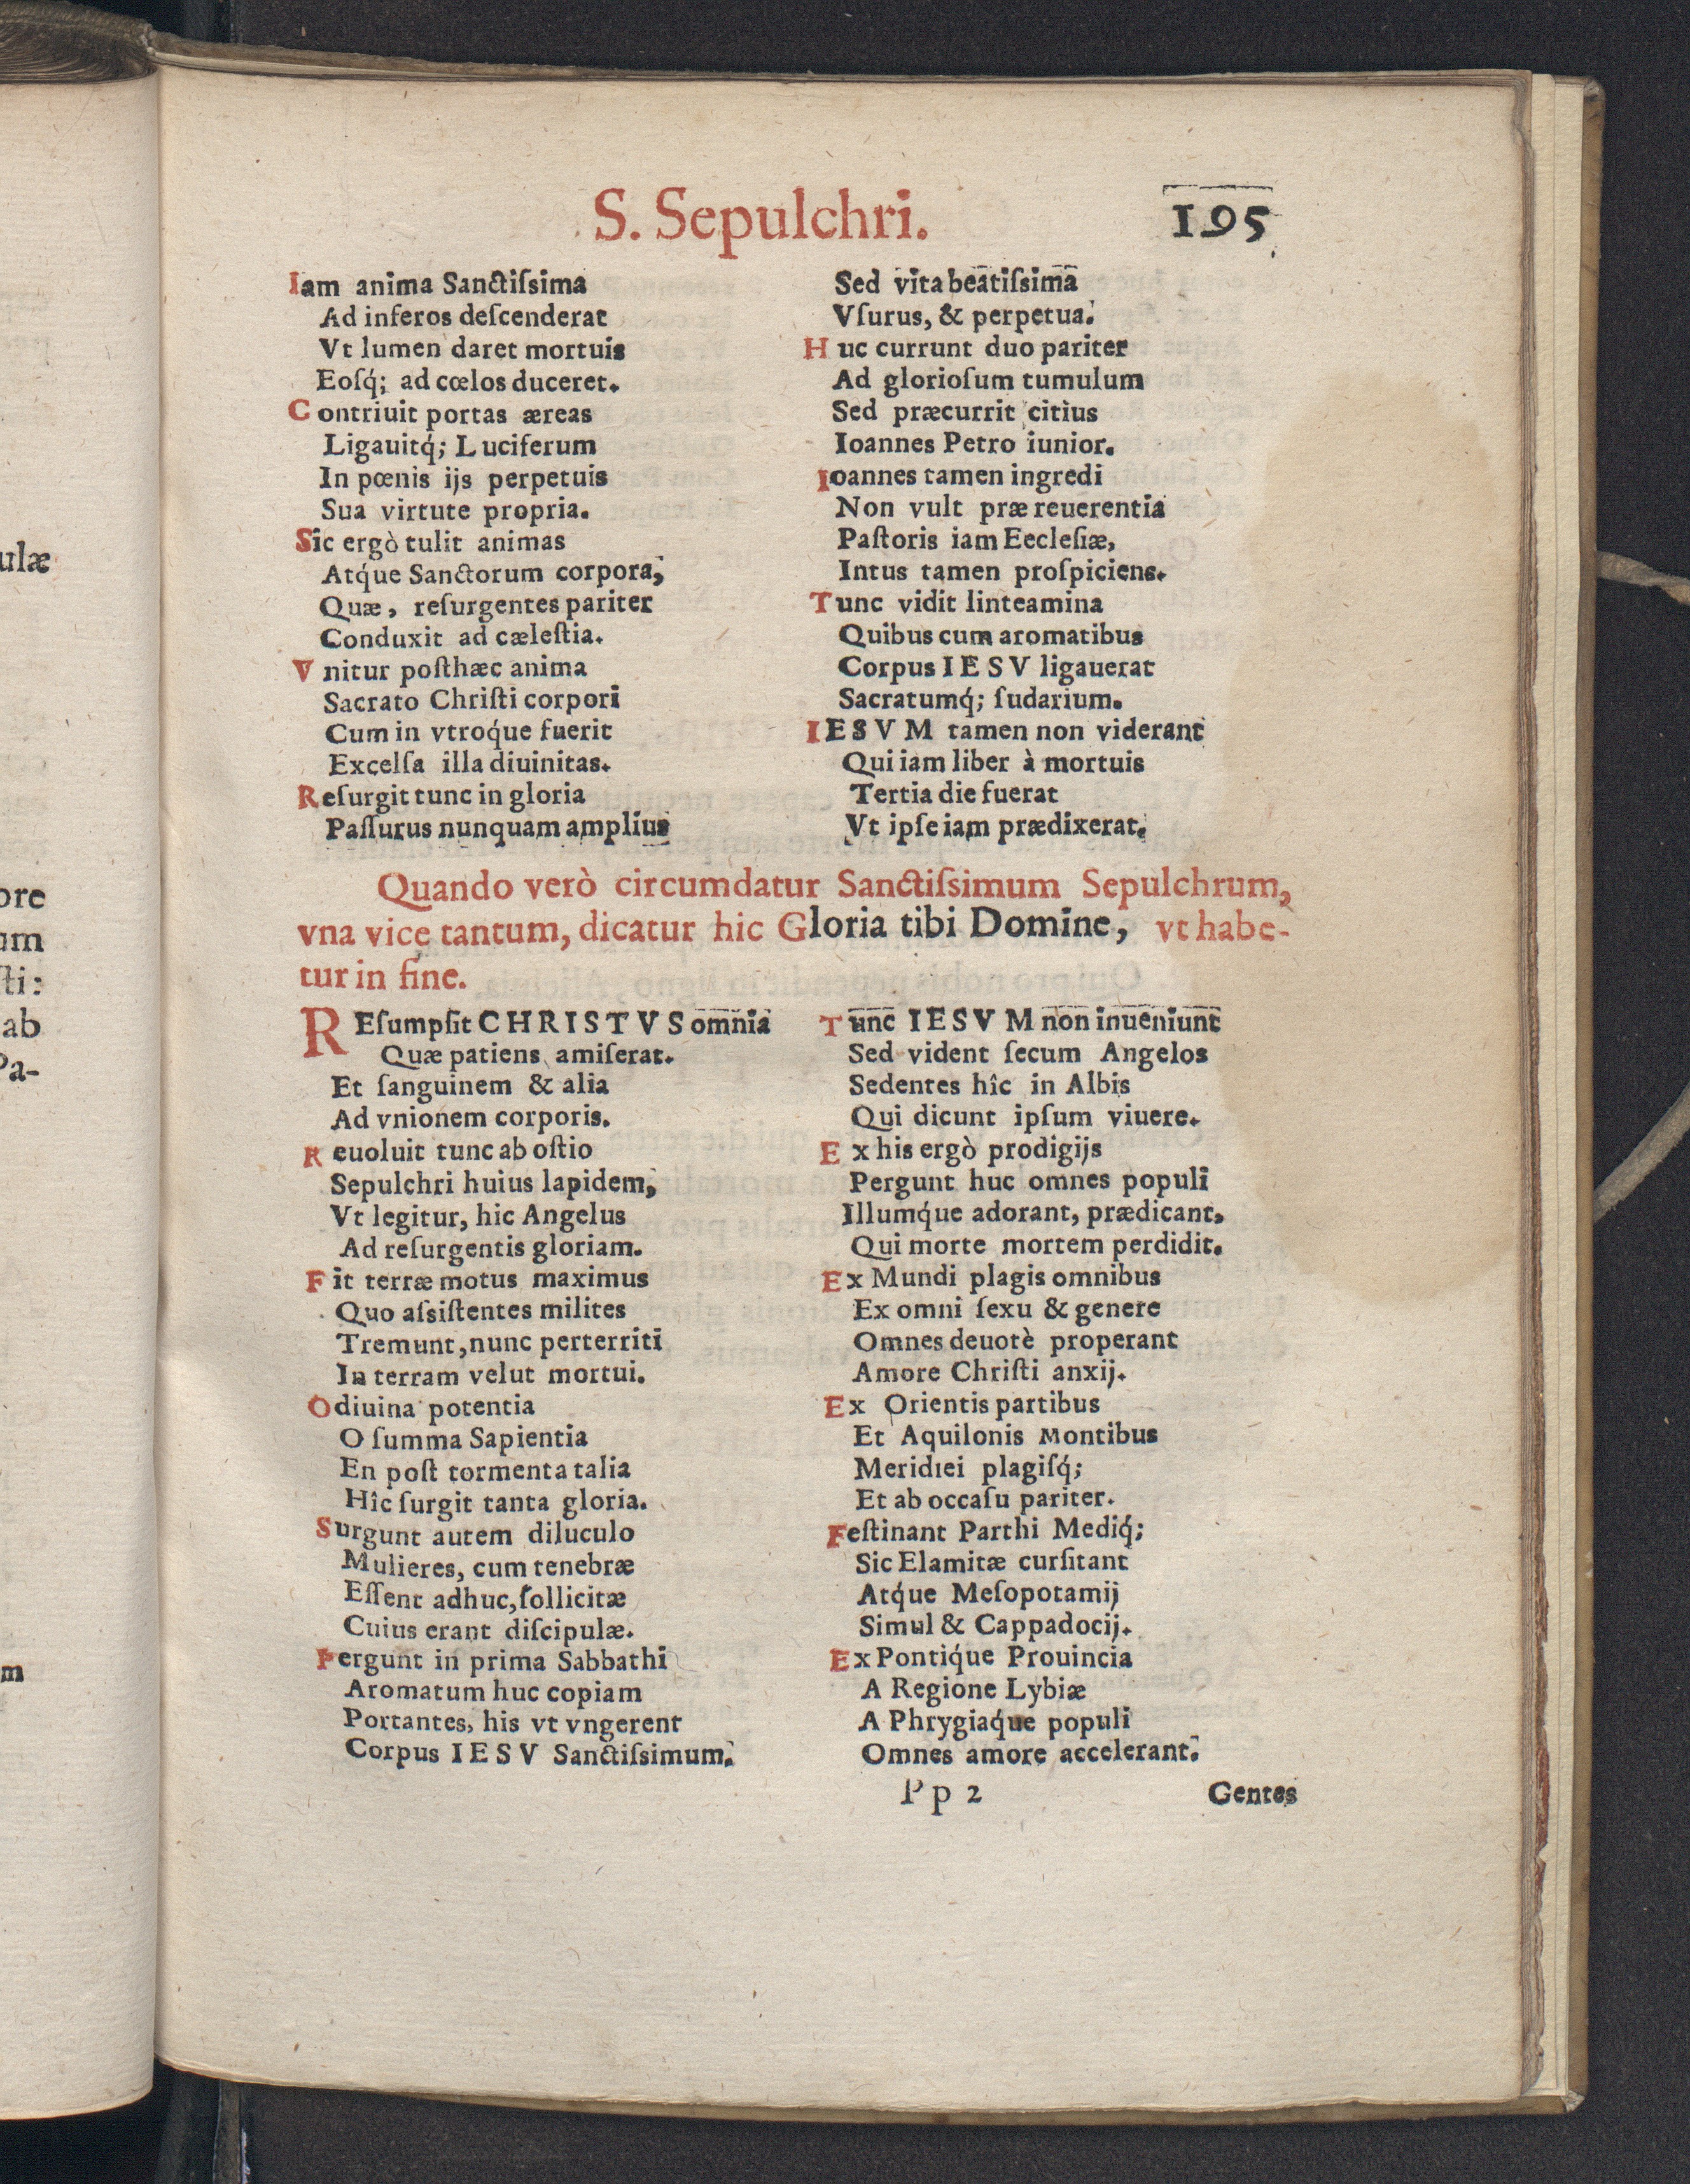 S. Sepulchri. 195
Iam anima Sanctiſsima
Ad inferos deſcenderat
Vt lumen daret mortuis
Eoſq́; ad cœlos duceret.
Contriuit portas æreas
Ligauitq́; Luciferum
In pœnis ijs perpetuis
Sua virtute propria.
Sic ergò tulit animas
Atq́ue Sanctorum corpora,
Quæ, reſurgentes pariter
Conduxit ad cæleſtia.
Vnitur poſthæc anima
Sacrato Chriſti corpori
Cum in vtroq́ue fuerit
Excelſa illa diuinitas.
Reſurgit tunc in gloria
Paſſurus nunquam amplius
Sed vita beatiſsima
Vſurus, & perpetua.
Huc currunt duo pariter
Ad glorioſum tumulum
Sed præcurrit citius
Ioannes Petro iunior.
Ioannes tamen ingredi
Non vult præ reuerentia
Paſtoris iam Eecleſiæ,
Intus tamen proſpiciens.
Tunc vidit linteamina
Quibus cum aromatibus
Corpus IESV ligauerat
Sacratumq́; ſudarium.
IESVM tamen non viderant
Qui iam liber à mortuis
Tertia die fuerat
Vt ipſe iam prædixerat.
Quando verò circumdatur Sanctiſsimum Sepulchrum,
vna vice tantum, dicatur hic Gloria tibi Domine, vt habe-
tur in fine.
REſumpſit CHRISTVS omnia
Quæ patiens amiſerat.
Et ſanguinem & alia
Ad vnionem corporis.
Reuoluit tunc ab oſtio
Sepulchri huius lapidem,
Vt legitur, hic Angelus
Ad reſurgentis gloriam.
Fit terræ motus maximus
Quo aſsiſtentes milites
Tremunt, nunc perterriti
In terram velut mortui.
O diuina potentia
O ſumma Sapientia
En poſt tormenta talia
Hîc ſurgit tanta gloria.
Surgunt autem diluculo
Mulieres, cum tenebræ
Eſſent adhuc, ſollicitæ
Cuius erant diſcipulæ.
Pergunt in prima Sabbathi
Aromatum huc copiam
Portantes, his vt vngerent
Corpus IESV Sanctiſsimum.
Tunc IESVM non inueniunt
Sed vident ſecum Angelos
Sedentes hîc in Albis
Qui dicunt ipſum viuere.
Ex his ergò prodigijs
Pergunt huc omnes populi
Illumq́ue adorant, prædicant,
Qui morte mortem perdidit.
Ex Mundi plagis omnibus
Ex omni ſexu & genere
Omnes deuotè properant
Amore Chriſti anxij.
Ex Orientis partibus
Et Aquilonis Montibus
Meridiei plagiſq́;
Et ab occaſu pariter.
Feſtinant Parthi Mediq́;
Sic Elamitæ curſitant
Atq́ue Meſopotamij
Simul & Cappadocij.
Ex Pontiq́ue Prouincia
A Regione Lybiæ
A Phrygiaq́ue populi
Omnes amore accelerant.
Pp 2 Gentes
ulæ
ore
um
ſti:
ab
Pa-
m